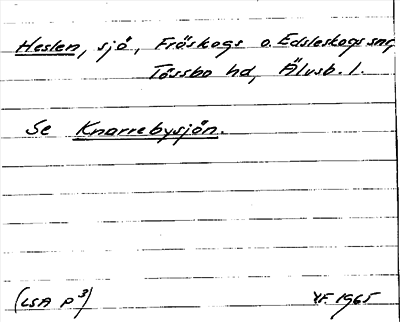 Heslen, sjö, Fröskogs o. Edsleskogs snr,
Tössbo hd, Älvsb. l.
Se Knarrebysjön.
(LSA P³) YF. 1965